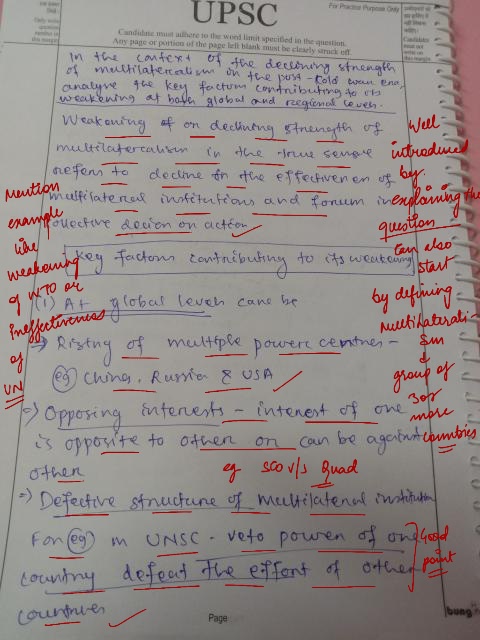 UPSC
For Practice Purpose Only
Candidate must adhere to the word limit specified in the question.
Any page or portion of the page left blank must be clearly struck off.
Only write
question
number in
this margin
Candidate
must not
write on
this margin
In the context of the declining strength
of multilateralism in the post-Cold war era,
analyse the key factors contributing to its
weakening at both global and regional levels.
Weakening of or declining strength of
multilateralism in the true sense
refers to decline in the effectiveness of
multilateral institutions and forum in
collective decision or action
Key factors contributing to its weakening
(1) At global levels can be
→ Rising of multiple power centres -
eg China, Russia & USA
⇒ Opposing interests - interest of one
is opposite to other or can be against
other
eg SCO v/s Quad
⇒ Defective structure of multilateral institution
For eg in UNSC - veto power of one
country defeat the effort of other
countries
Mention
example
like
weakening
of WTO or
ineffectiveness
of
UN
Well
introduced
by
explaining the
question
Can also
start
by defining
Multilaterali-
sm
&
group of
3 or
more
countries
Good
point
Page